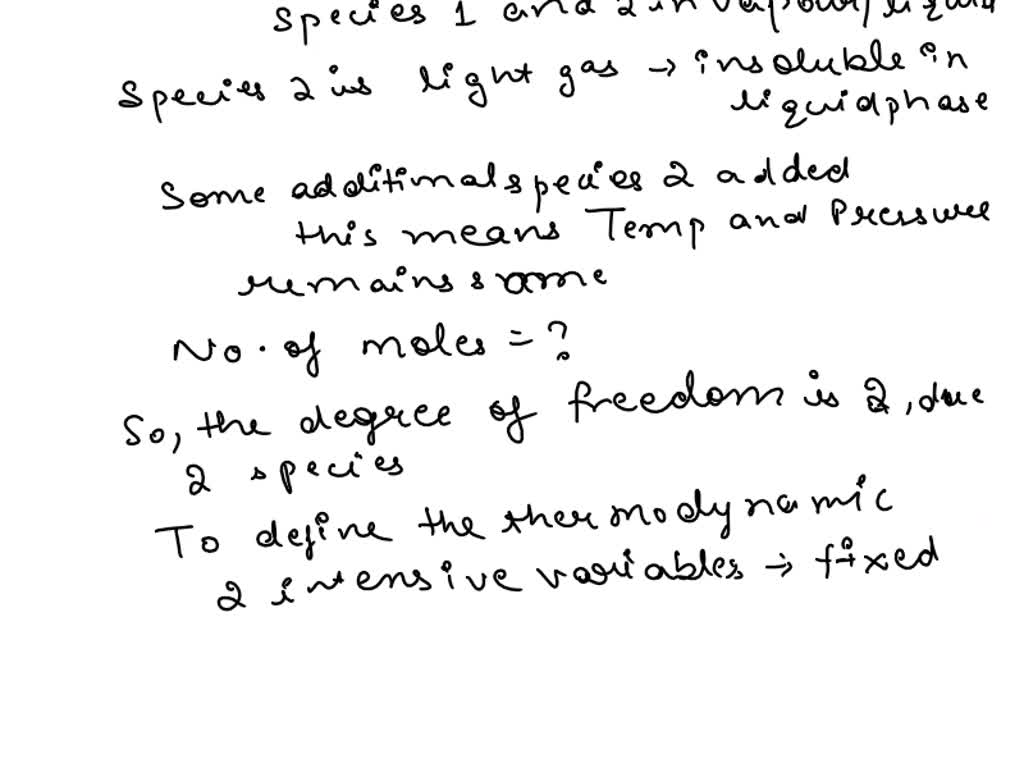 Species 1 and 2 in vapour/liquid
Species 2 is light gas → insoluble in
liquid phase
Some additional species 2 added
this means Temp and Pressure
remains same
No. of moles = ?
So, the degree of freedom is 2, due
2 species
To define the thermodynamic
2 intensive variables → fixed